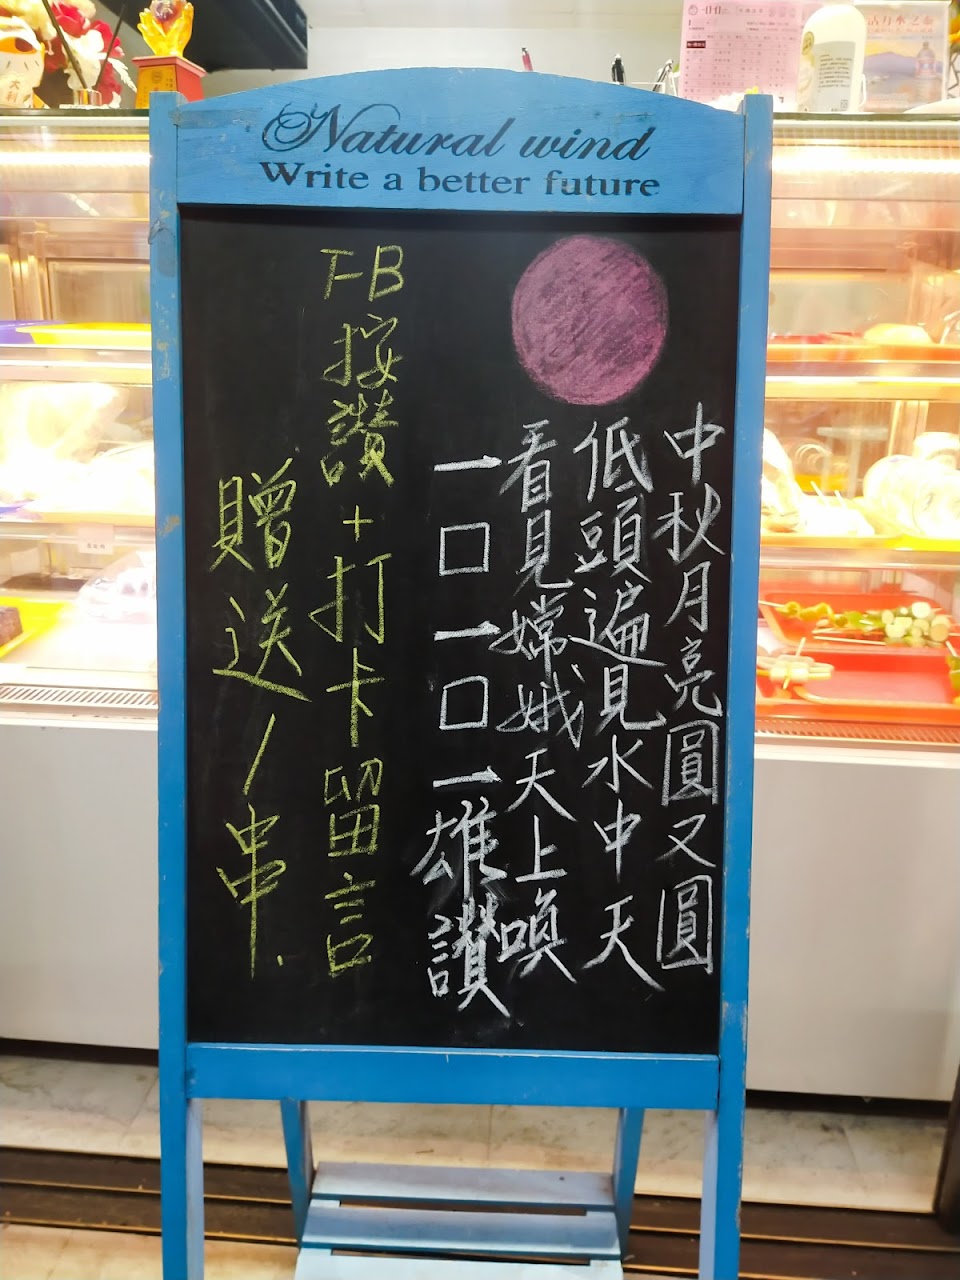 Natural wind
Write a better future
中秋月亮圓又圓
低頭遍見水中天
看見嫦娥天上喚
一口一口一雄讚
FB按讚+打卡留言
贈送1串.